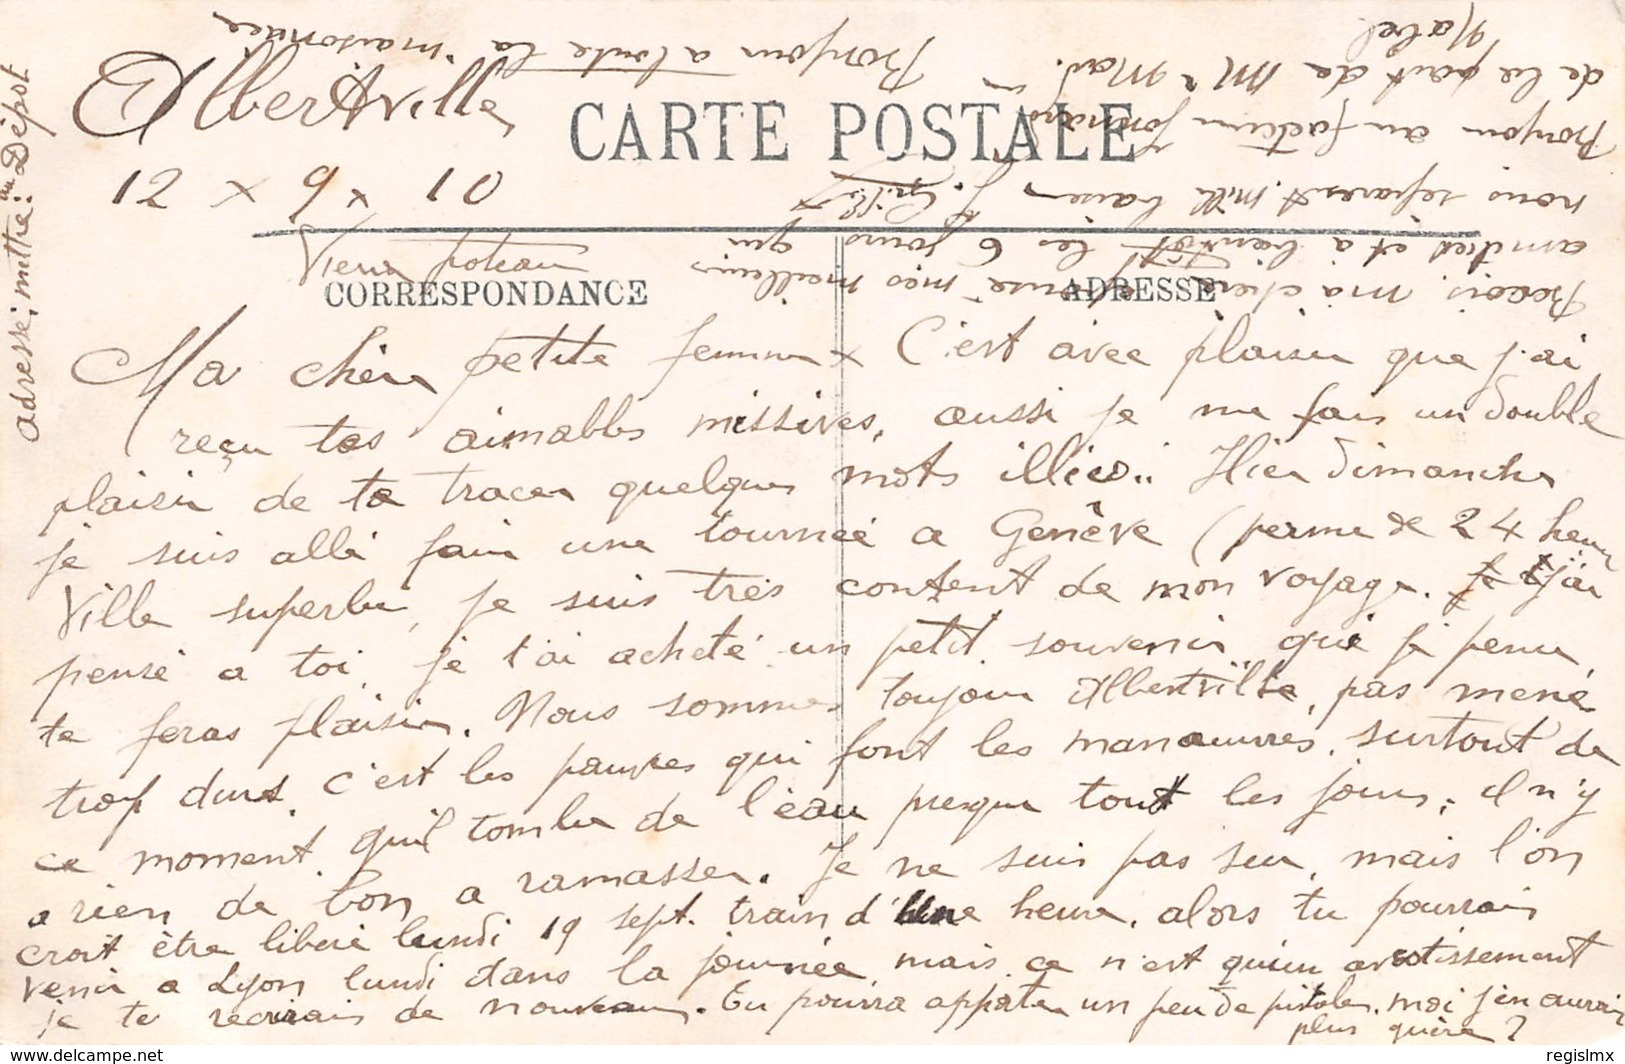 Albertville
12 x 9 x 10
CARTE POSTALE
Vieux poteau
CORRESPONDANCE
ADRESSE
Ma chère petite femme x C'est avec plaisir que j'ai
reçu tes aimables missives, aussi je me fais un double
plaisir de te tracer quelques mots illico.. Hier dimanche
je suis allé faire une tournée a Genêve (perme de 24 heures
Ville superbe, je suis très content de mon voyage. j'ai
pensé a toi, je t'ai acheté un petit souvenir qui je pense
te feras plaisir. Nous sommes toujours Albertville, pas mené
trop durs, c'est les pauvres qui font les manœuvres, surtout de
ce moment qu'il tombe de l'eau presque tout les jours; il n'y
a rien de bon a ramasser. Je ne suis pas sur, mais l'on
croit être libéré lundi 19 sept. train d'une heure, alors tu pourrais
venir a Lyon lundi dans la journée, mais ce n'est qu'un avertissement
je te récrirais de nouveau. Tu pourra appeter un peu de pistoles, moi j'en aurai
plus guère?
Recois, ma chère épouse mes meilleurs
amitiés et à bientôt les 6 jours qui
nous séparent. mille baisers J.
Bonjour au facteur
de la part de Mr
Bonjour a toute la maisonnée
adresse; mettre: au Dépôt
regislmx